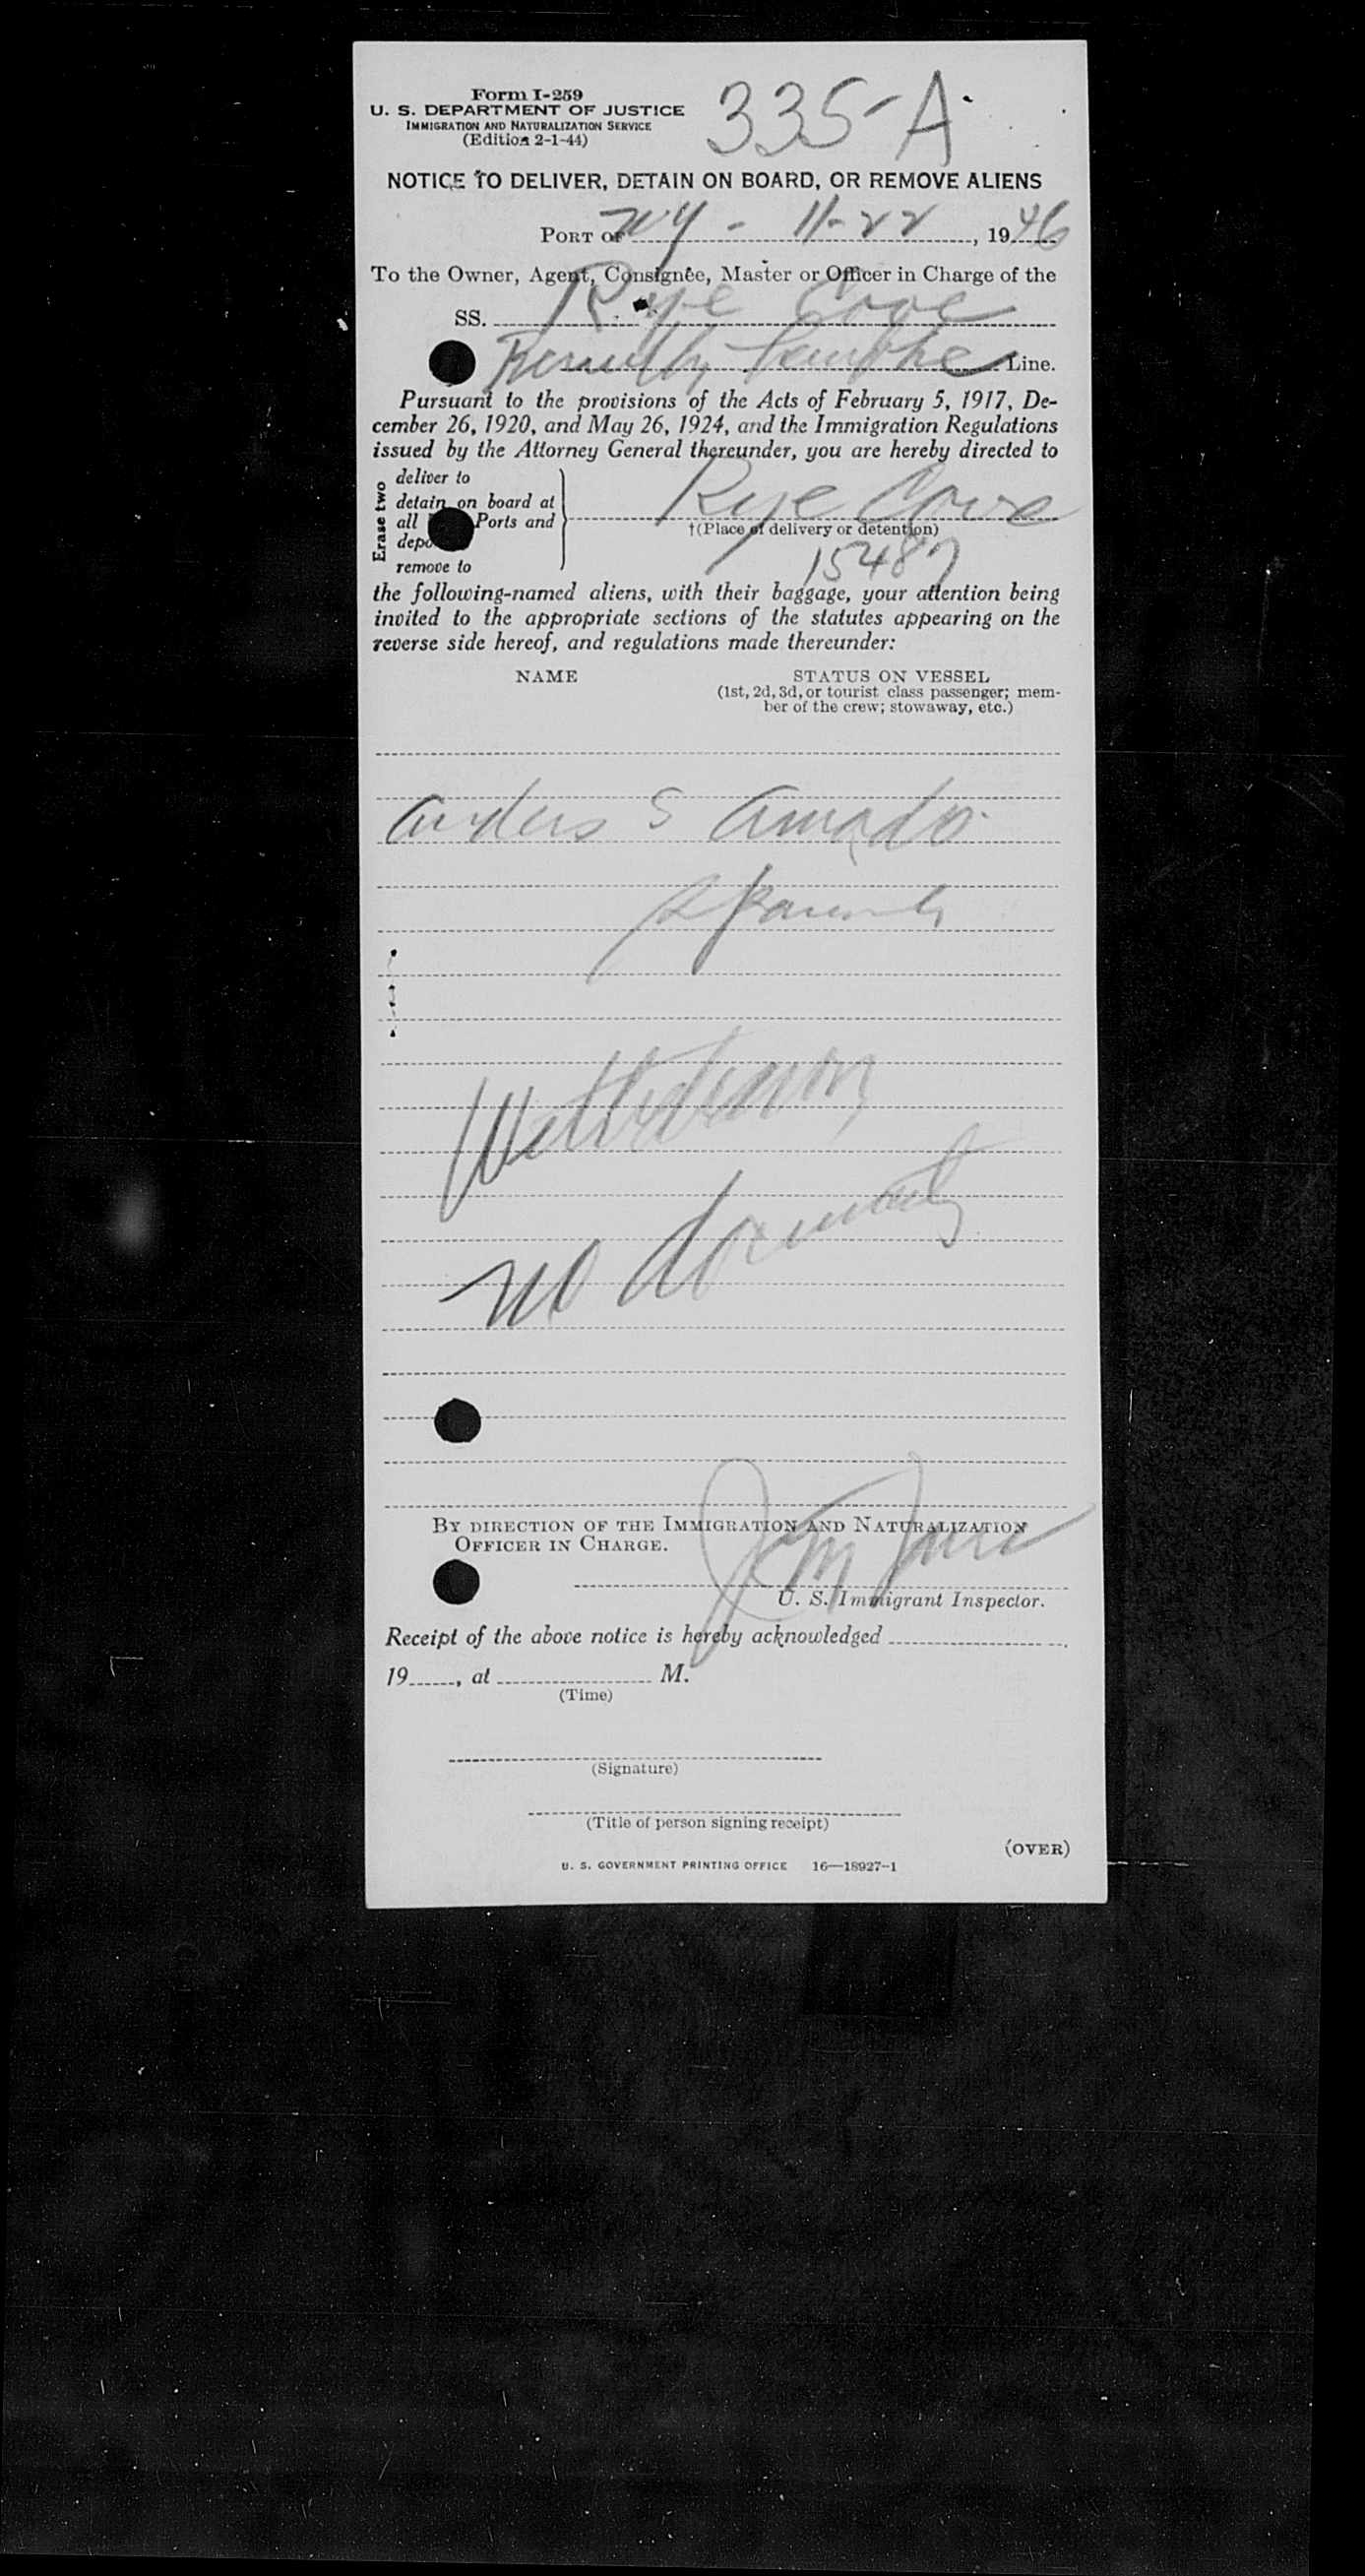 Form I-259
U. S. DEPARTMENT OF JUSTICE
IMMIGRATION AND NATURALIZATION SERVICE
(Edition 2-1-44)
335-A
NOTICE TO DELIVER, DETAIN ON BOARD, OR REMOVE ALIENS
PORT OF NY - 11-22, 1946
To the Owner, Agent, Consignee, Master or Officer in Charge of the
SS. Rye Cove
Line.
Pursuant to the provisions of the Acts of February 5, 1917, De-
cember 26, 1920, and May 26, 1924, and the Immigration Regulations
issued by the Attorney General thereunder, you are hereby directed to
Erase two
deliver to
detain on board at
all Ports and
remove to
Rye Cove
†(Place of delivery or detention)
15487
the following-named aliens, with their baggage, your attention being
invited to the appropriate sections of the statutes appearing on the
reverse side hereof, and regulations made thereunder:
NAME
STATUS ON VESSEL
(1st, 2d, 3d, or tourist class passenger; mem-
ber of the crew; stowaway, etc.)
S Amador
Spanish
no
BY DIRECTION OF THE IMMIGRATION AND NATURALIZATION
OFFICER IN CHARGE.
U. S. Immigrant Inspector.
Receipt of the above notice is hereby acknowledged
19, at M.
(Time)
(Signature)
(Title of person signing receipt)
(OVER)
U. S. GOVERNMENT PRINTING OFFICE 16—18927-1